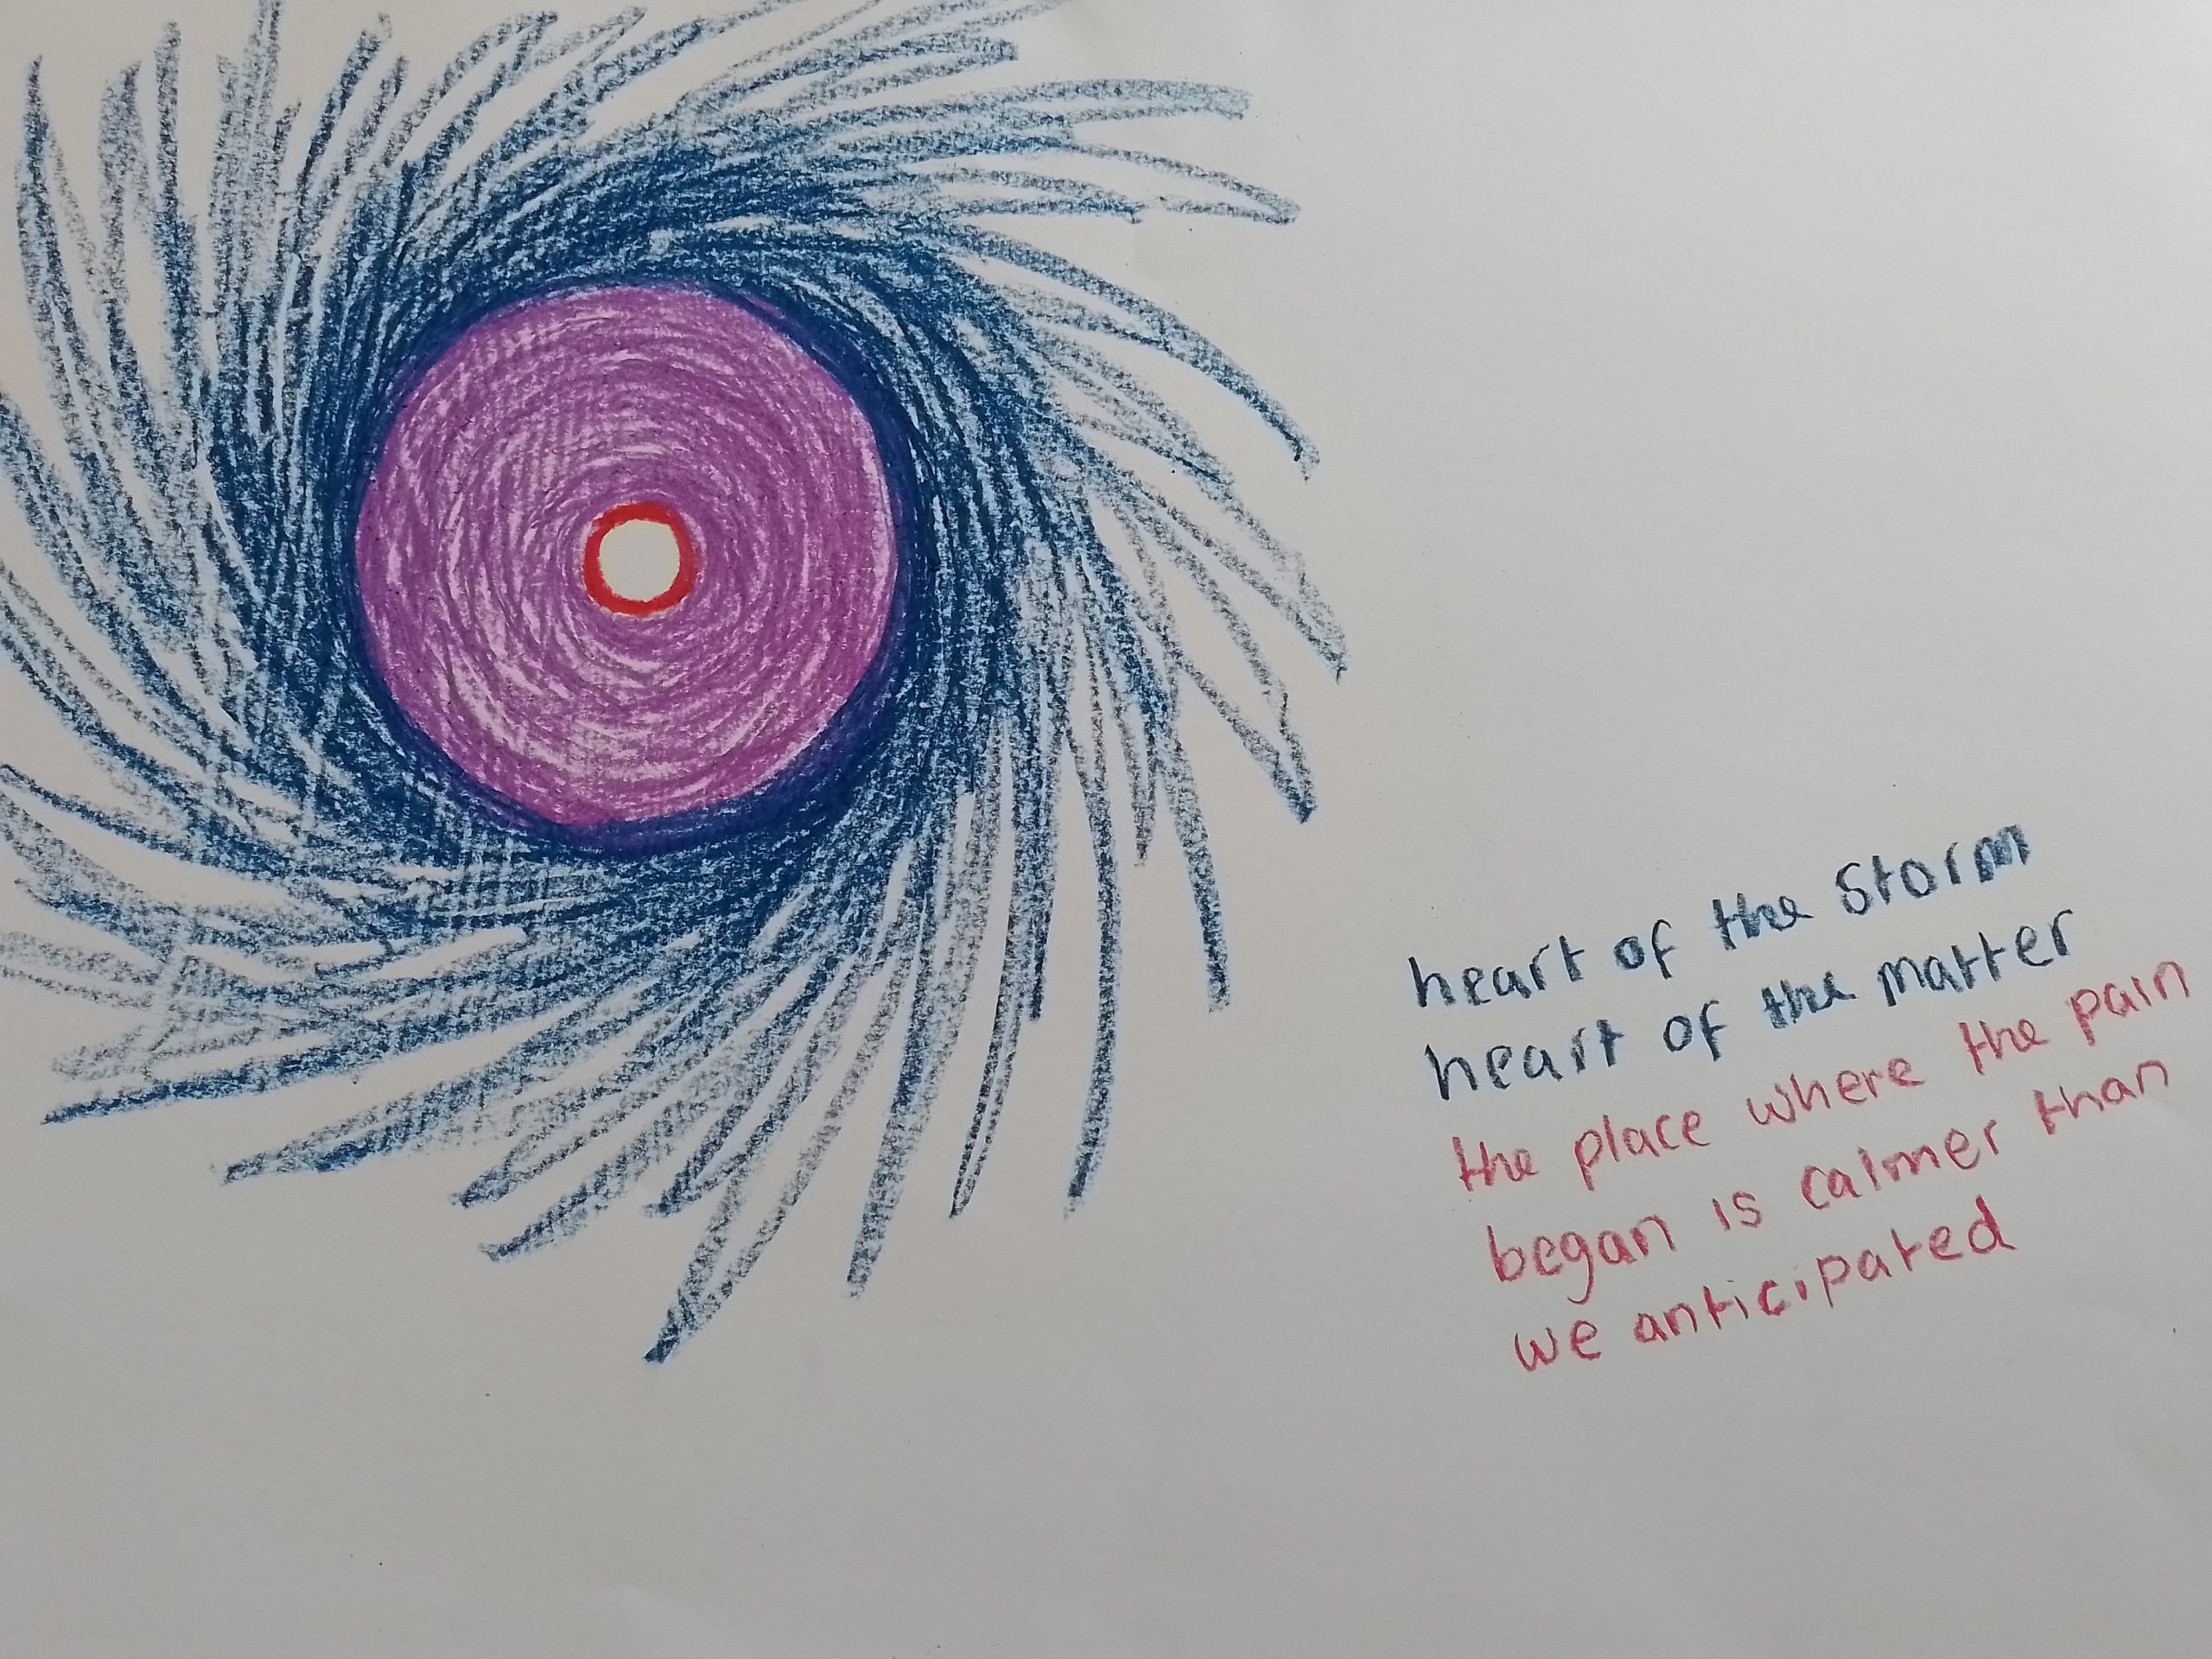 heart of the Storm
heart of the matter
the place where the pain
began is calmer than
we anticipated